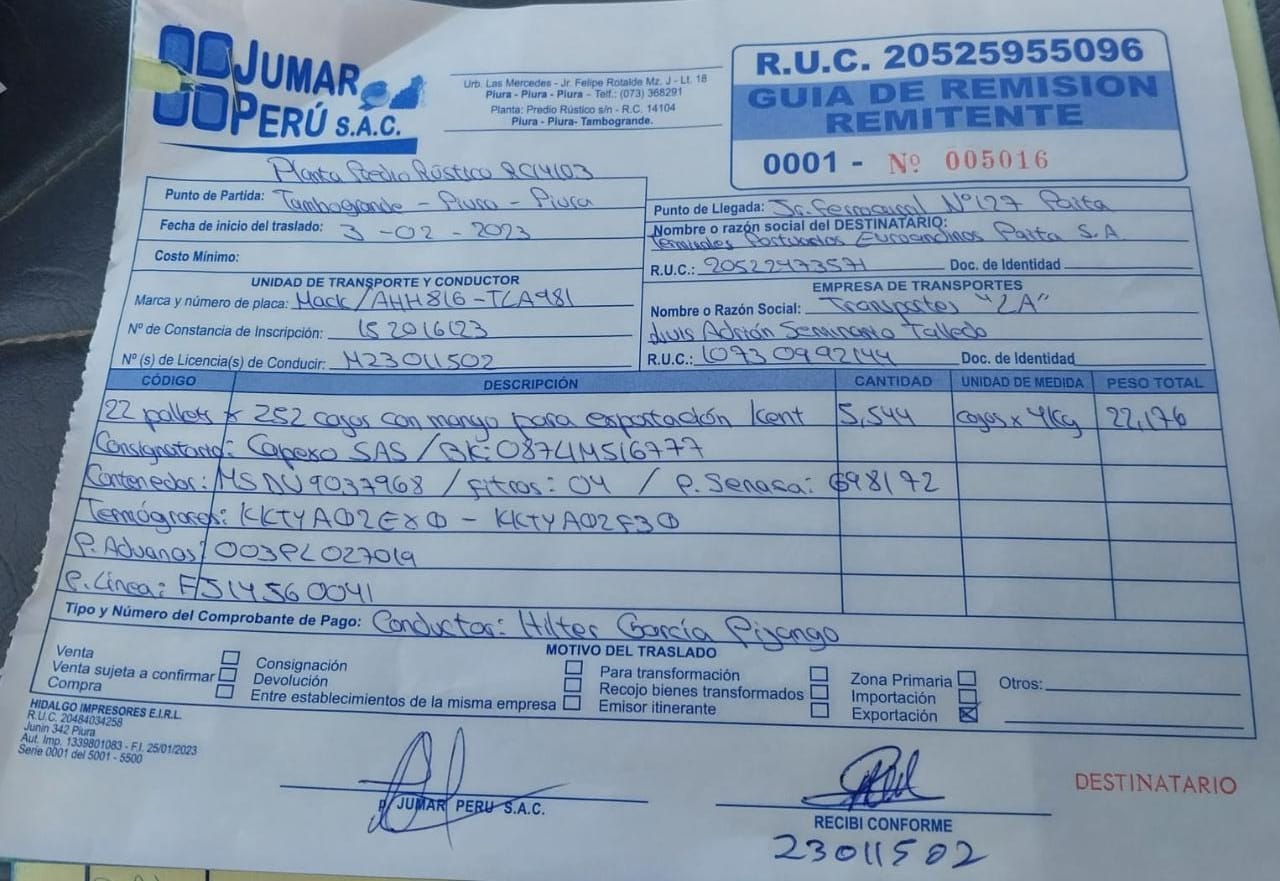 JUMAR
PERÚ S.A.C.
Urb. Las Mercedes - Jr. Felipe Rotalde Mz. J - Lt. 18
Piura - Piura - Piura - Telf.: (073) 368291
Planta: Predio Rústico s/n - R.C. 14104
Piura - Piura- Tambogrande.
R.U.C. 20525955096
GUIA DE REMISION
REMITENTE
0001 - Nº 005016
Planta Predio Rústico RC14103
Punto de Partida: Tambogrande - Piura - Piura
Fecha de inicio del traslado: 3-02-2023
Costo Mínimo:
Punto de Llegada: Jr. Ferrocarril Nº 127 Paita
Nombre o razón social del DESTINATARIO:
Terminales Portuarios Euroandinos Paita S.A.
R.U.C.: 20522473571 Doc. de Identidad
UNIDAD DE TRANSPORTE Y CONDUCTOR
Marca y número de placa: Mack/AHH816-TCA981
Nº de Constancia de Inscripción: 152016123
Nº (s) de Licencia(s) de Conducir: M23011502
EMPRESA DE TRANSPORTES
Nombre o Razón Social: Transportes "LA"
Luis Adrián Seminario Talledo
R.U.C.: 10730992144 Doc. de Identidad
CÓDIGO DESCRIPCIÓN CANTIDAD UNIDAD DE MEDIDA PESO TOTAL
22 pallets x 252 cajas con mango para exportación Kent 5,544 cajas x 4Kg 22,176
Consignatario: Capexo SAS / BK: 0874IMS16777
Contenedor: MSDU9037968 / Fitros: 04 / P. Senasa: 698172
Termógrafos: KKTYA02EX0 - KKTYA02F30
P. Aduanas: 003PL027019
P. Línea: FJ14560041
Tipo y Número del Comprobante de Pago: Conductor: Hilter García Pizango
MOTIVO DEL TRASLADO
Venta
Venta sujeta a confirmar
Compra
Consignación
Devolución
Entre establecimientos de la misma empresa
Para transformación
Recojo bienes transformados
Emisor itinerante
Zona Primaria
Importación
Exportación
Otros:
HIDALGO IMPRESORES E.I.R.L.
R.U.C. 20484034258
Junin 342 Piura
Aut. Imp. 1339801083 - F.I. 25/01/2023
Serie 0001 del 5001 - 5500
P/ JUMAR PERU S.A.C.
RECIBI CONFORME
23011502
DESTINATARIO